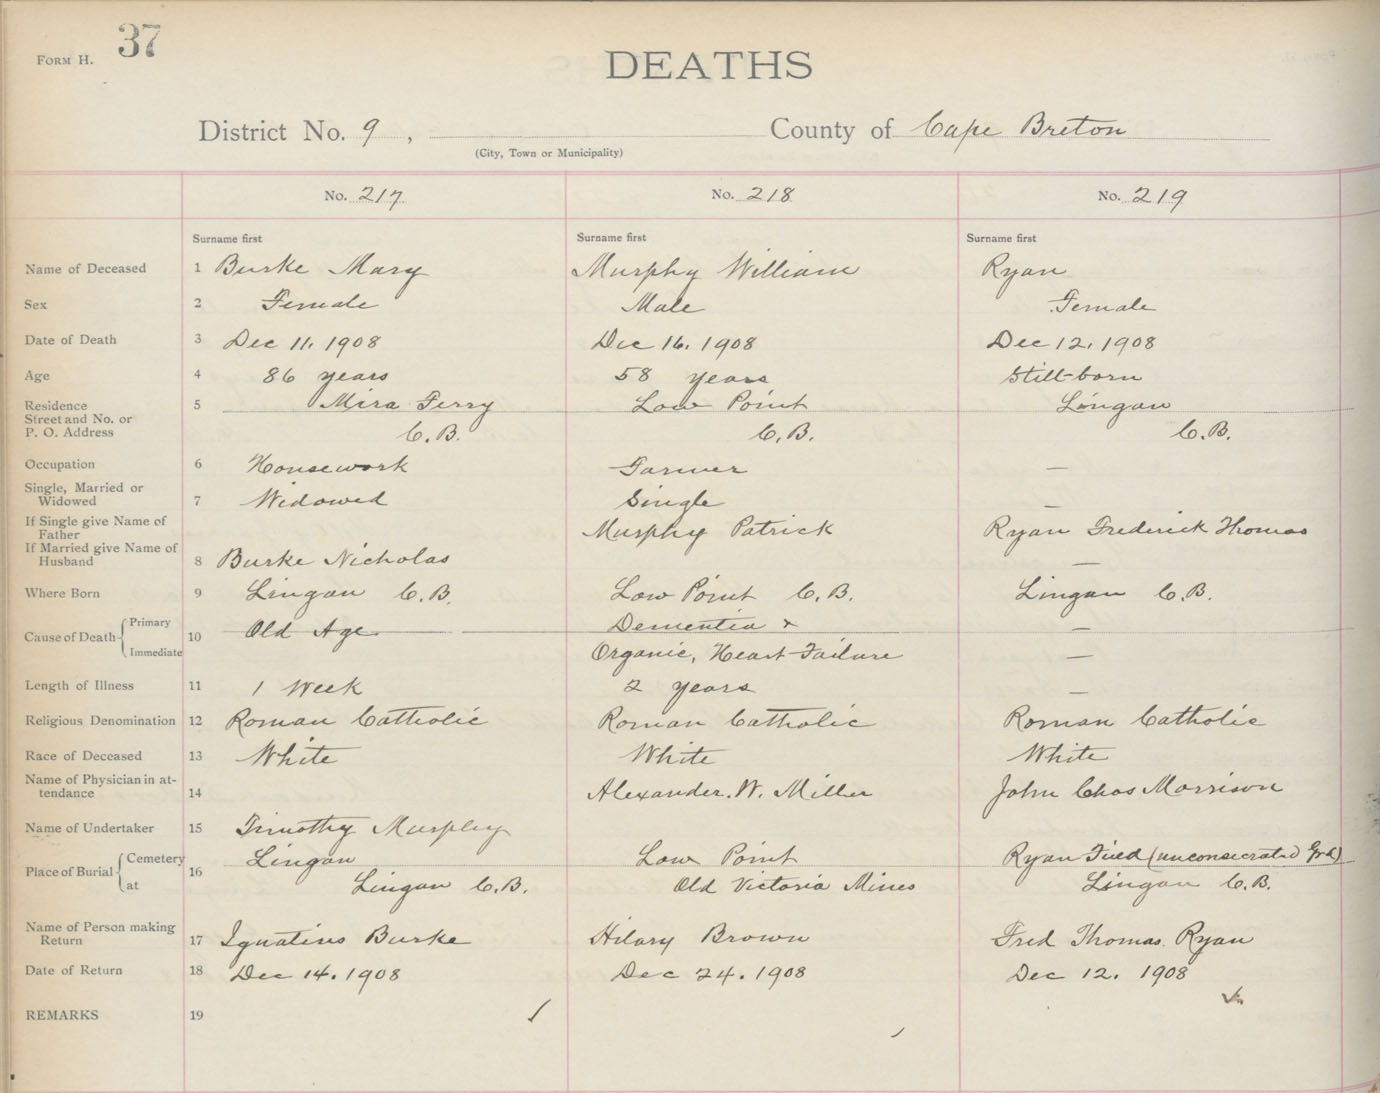 Form H. 37
DEATHS
District No. 9, County of Cape Breton
(City, Town or Municipality)
No. 217 No. 218 No. 219
Surname first Surname first Surname first
Name of Deceased 1 Burke Mary Murphy William Ryan
Sex 2 Female Male Female
Date of Death 3 Dec 11. 1908 Dec 16. 1908 Dec 12. 1908
Age 4 86 years 58 years Still-born
Residence 5 Mira Ferry Low Point Lingan
Street and No. or
P. O. Address C.B. C.B. C.B.
Occupation 6 Housework Farmer —
Single, Married or
Widowed 7 Widowed Single —
If Single give Name of
Father Murphy Patrick Ryan Frederick Thomas
If Married give Name of
Husband 8 Burke Nicholas —
Where Born 9 Lingan C.B. Low Point C.B. Lingan C.B.
Cause of Death Primary 10 Old Age Dementia + —
Immediate Organic, Heart Failure —
Length of Illness 11 1 Week 2 years —
Religious Denomination 12 Roman Catholic Roman Catholic Roman Catholic
Race of Deceased 13 White White White
Name of Physician in at-
tendance 14 Alexander. W. Miller John Chas Morrison
Name of Undertaker 15 Timothy Murphy
Place of Burial Cemetery 16 Lingan Low Point Ryan Field (unconsecrated Grd)
at Lingan C.B. Old Victoria Mines Lingan C.B.
Name of Person making
Return 17 Ignatius Burke Hilary Brown Fred Thomas. Ryan
Date of Return 18 Dec 14. 1908 Dec 24. 1908 Dec 12. 1908
REMARKS 19